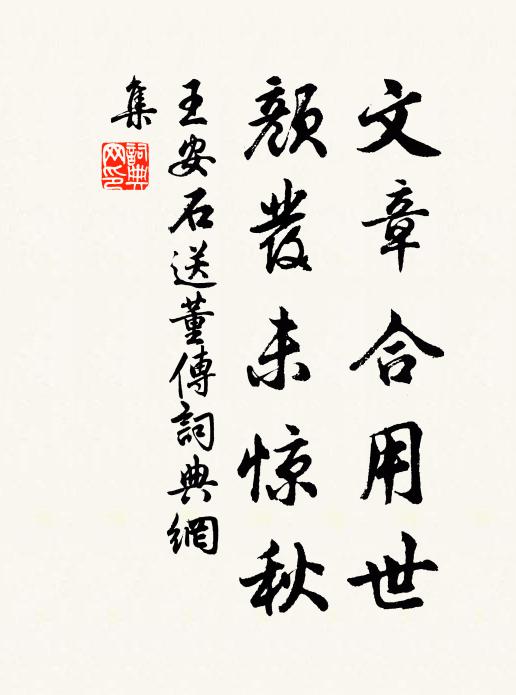 文章合用世
顏發未惊秋
王安石送董傳詞典網
集
詞典网印